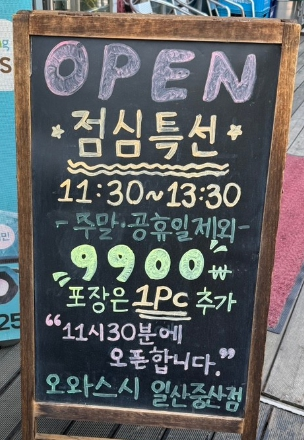 OPEN
점심특선
11:30~13:30
-주말·공휴일제외-
9900₩
포장은 1PC 추가
"11시30분에
오픈합니다."
오와스시 일산중산점
25